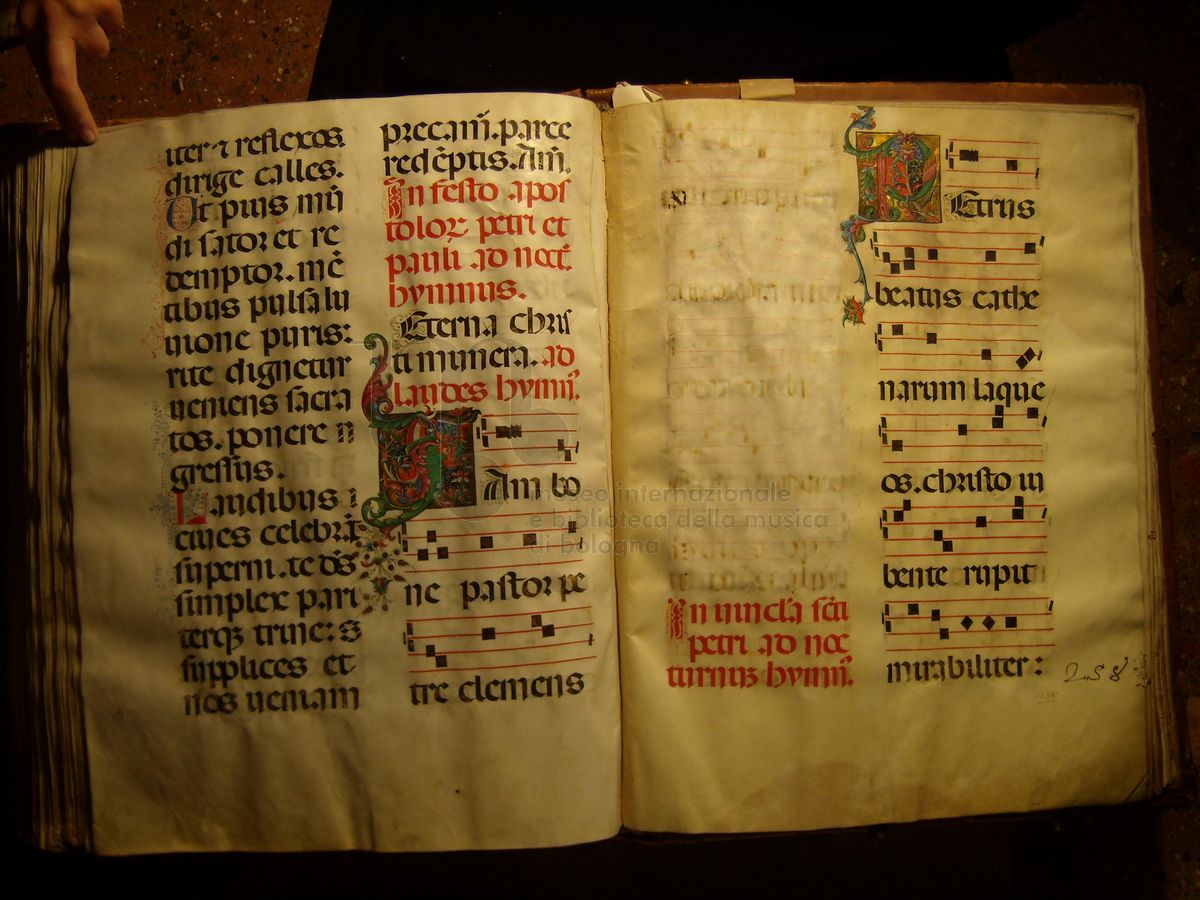 iter ⁊ reflexos
dirige calles.
Ut puis mũ
di sator et re
demptor. mẽ
tibus pulsa lu
mone puris:
rite dignetur
ueniens sacra
tos. ponere
gressus.
Laudibus
ciues celebrãt
superni. te
simplex pari
terqꝫ trine: s
supplices et
nos ueniam
precam̃. parce
redẽptis. Am̃.
In festo apos
toloꝝ petri et
pauli ad noct.
hymnus.
Eterna chris
ti munera. ad
laudes hymñ.
IAm bo
ne pastor pe
tre clemens
In uincl'a sc̃ti
petri ad noc
turnuꝫ hymñ.
PEtrus
beatus cathe
narum laque
os. christo iu
bente rupit
mirabiliter:
258
museo internazionale
e biblioteca della musica
di bologna